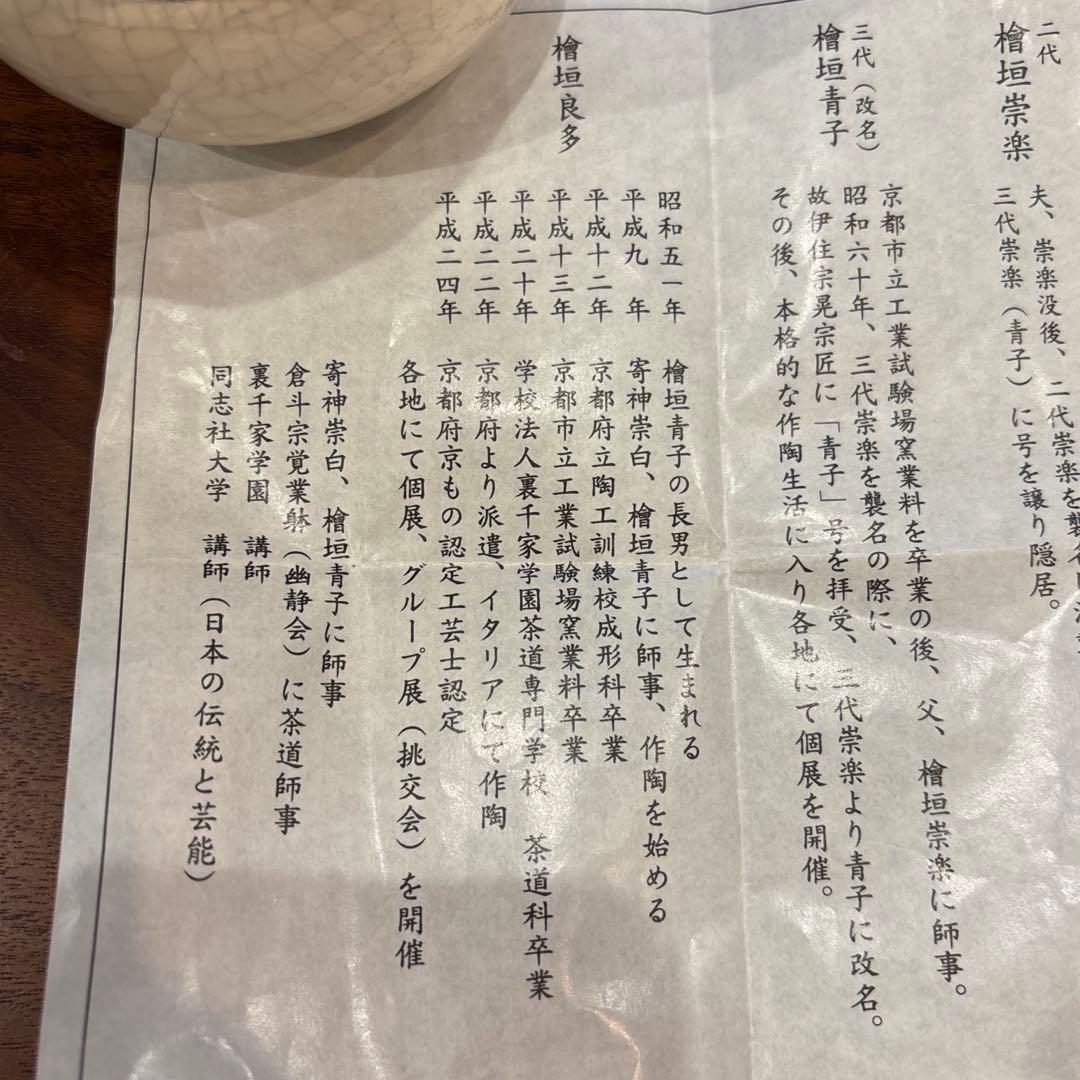 二代
檜垣崇楽
夫、崇楽没後、二代崇楽を襲名
三代崇楽（青子）に号を譲り隠居。
三代（改名）
檜垣青子
京都市立工業試験場窯業料を卒業の後、父、檜垣崇楽に師事。
昭和六十年、三代崇楽を襲名の際に、
故伊住宗晃宗匠に「青子」号を拝受、三代崇楽より青子に改名。
その後、本格的な作陶生活に入り各地にて個展を開催。
檜垣良多
昭和五一年 檜垣青子の長男として生まれる
平成九 年 寄神崇白、檜垣青子に師事、作陶を始める
平成十二年 京都府立陶工訓練校成形科卒業
平成十三年 京都市立工業試験場窯業料卒業
平成二十年 学校法人裏千家学園茶道専門学校 茶道科卒業
平成二二年 京都府より派遣、イタリアにて作陶
平成二四年 京都府京もの認定工芸士認定
各地にて個展、グループ展（挑交会）を開催
寄神崇白、檜垣青子に師事
倉斗宗覚業躰（幽静会）に茶道師事
裏千家学園 講師
同志社大学 講師（日本の伝統と芸能）